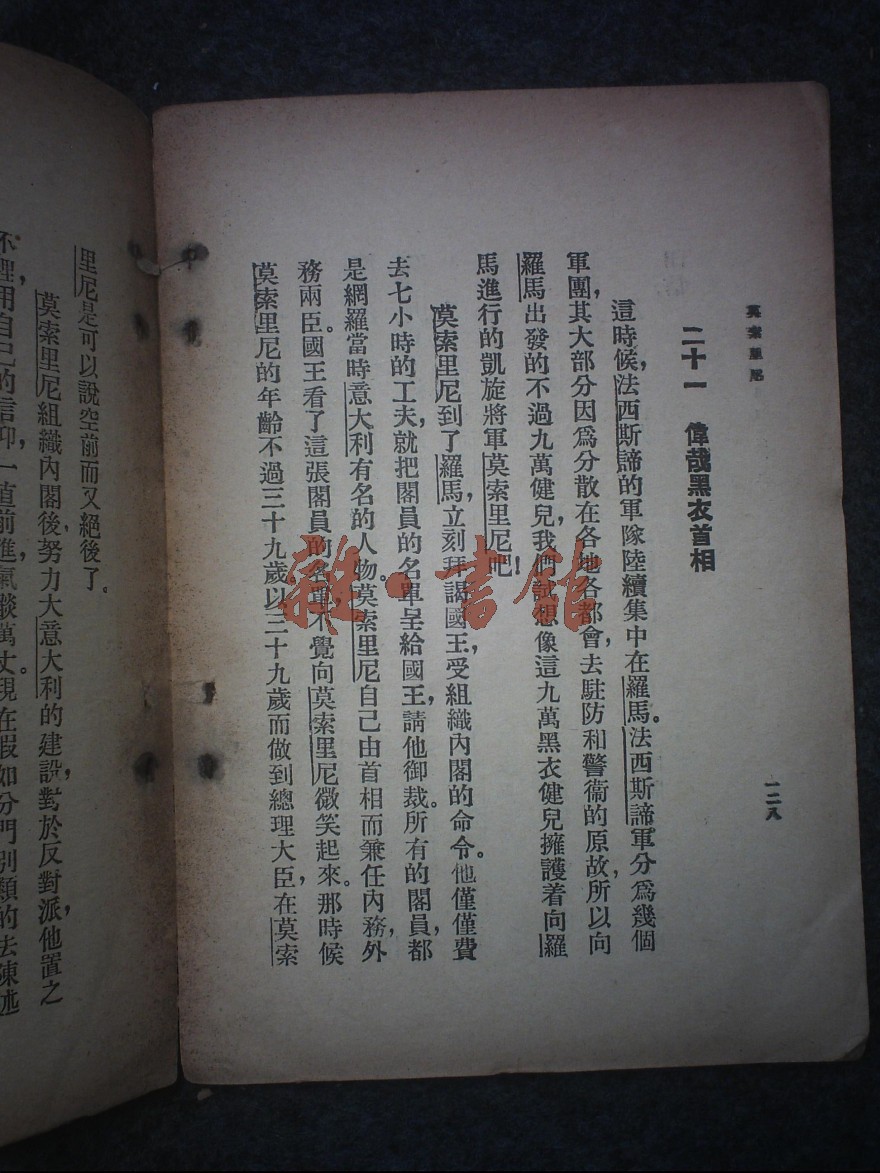 莫索里尼
一二八
二十一　偉哉黑衣首相
這時候，法西斯諦的軍隊陸續集中在羅馬。法西斯諦軍分爲幾個
軍團，其大部分因爲分散在各地各都會，去駐防和警衞的原故，所以向
羅馬出發的不過九萬健兒，我們試想像這九萬黑衣健兒擁護着向羅
馬進行的凱旋將軍莫索里尼吧！
莫索里尼到了羅馬，立刻拜謁國王，受組織內閣的命令。他僅僅費
去七小時的工夫，就把閣員的名單呈給國王，請他御裁。所有的閣員，都
是網羅當時意大利有名的人物。莫索里尼自己由首相而兼任內務外
務兩臣。國王看了這張閣員的名單，不覺向莫索里尼微笑起來。那時候
莫索里尼的年齡不過三十九歲。以三十九歲而做到總理大臣，在莫索
里尼是可以說空前而又絕後了。
莫索里尼組織內閣後，努力大意大利的建設，對於反對派，他置之
不理，用自己的信仰，一直前進，氣燄萬丈。現在假如分門別類的去陳述
雜·書館